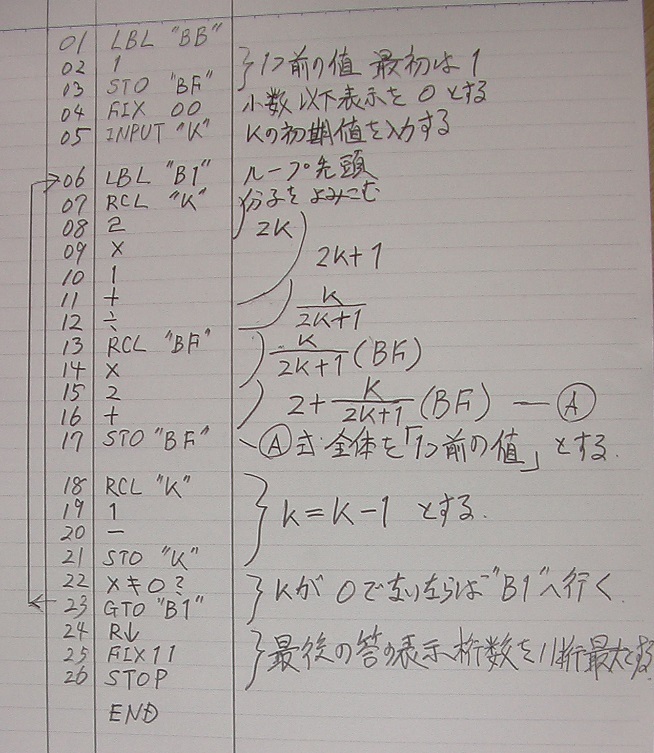 01 LBL "BB"
02 1 }1つ前の値 最初は1
03 STO "BF"
04 FIX 00 小数以下表示を0とする
05 INPUT "K" Kの初期値を入力する
06 LBL "B1" ループ先頭
07 RCL "K" 分子をよみこむ
08 2 2K
09 ×
10 1 2K+1
11 +
12 ÷ K/2K+1
13 RCL "BF"
14 × K/2K+1 (BF)
15 2
16 + 2+K/2K+1 (BF) — Ⓐ
17 STO "BF" Ⓐ式全体を「1つ前の値」とする.
18 RCL "K"
19 1 } K=K-1 とする.
20 −
21 STO "K"
22 X≠0?
23 GTO "B1" } Kが0でないならば "B1"へ行く
24 R↓
25 FIX11 }最後の答の表示桁数を11桁最大とする
26 STOP
END